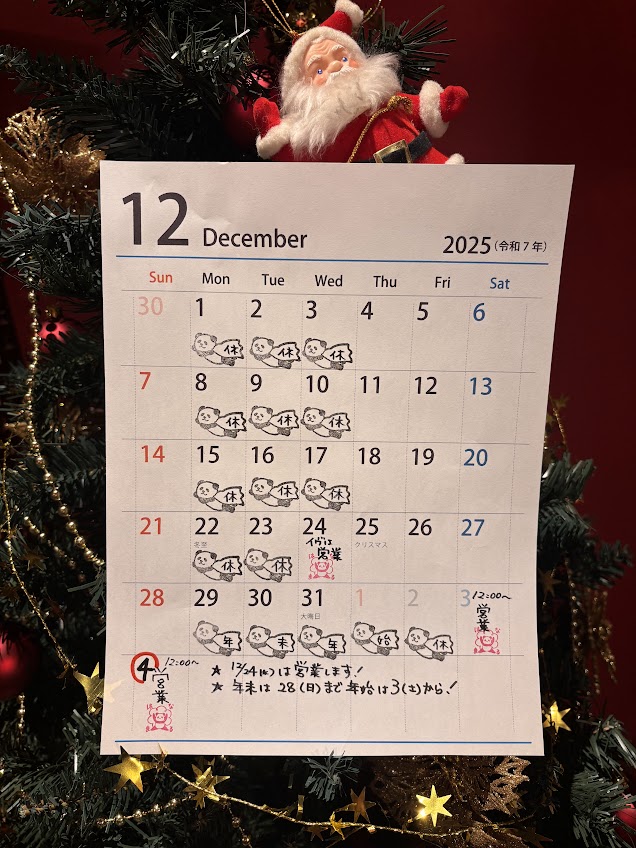 12 December 2025(令和7年)
Sun Mon Tue Wed Thu Fri Sat
30 1 2 3 4 5 6
休 休 休
7 8 9 10 11 12 13
休 休 休
14 15 16 17 18 19 20
休 休 休
21 22 23 24 25 26 27
冬至 イヴは クリスマス
休 休 営業
28 29 30 31 1 2 3 12:00~
大晦日 営業
年 末 年 始 休
4 12:00~
営業
★ 12/24(水)は営業します!
★ 年末は28(日)まで年始は3(土)から!